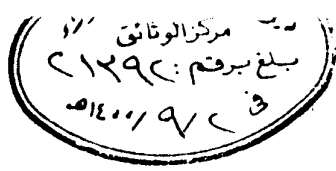 مركز الوثائق
بلغ برقم : ٢١٣٩٢
فى ٢ / ٩ / ١٤٠٠هـ